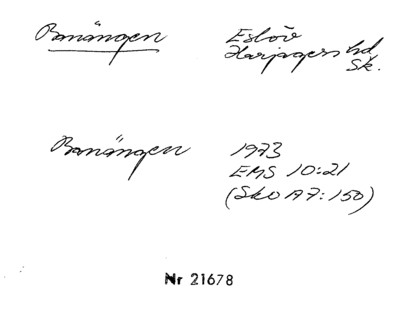 Banängen Eslöv
Harjagers hd
Sk.
Banängen 1973
EMS 10:21
(Sko A7:150)
Nr 21678